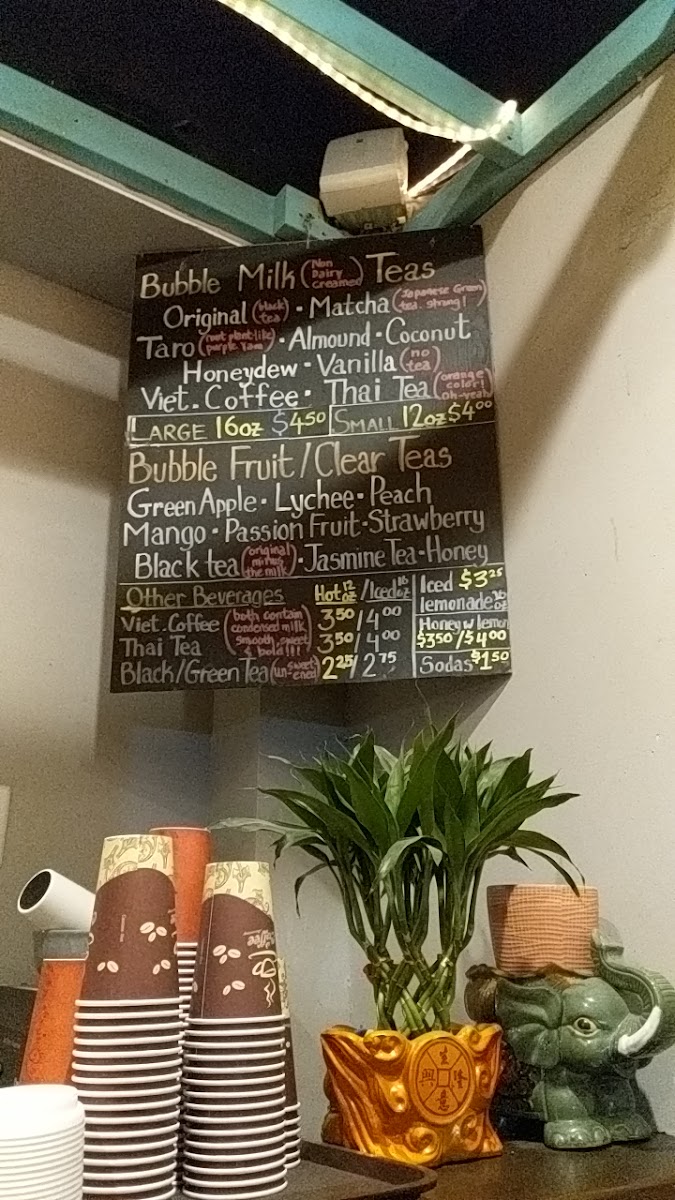 Bubble Milk (Non Dairy creamer) Teas
Original (black tea) · Matcha (Japanese Green tea. strong!)
Taro (root plant-like purple yam) · Almound · Coconut
Honeydew · Vanilla (no tea)
Viet. Coffee · Thai Tea (orange color! oh-yeah)
LARGE 16oz $4.50 SMALL 12oz $4.00
Bubble Fruit / Clear Teas
Green Apple · Lychee · Peach
Mango · Passion Fruit · Strawberry
Black tea (original minus the milk) · Jasmine Tea · Honey
Other Beverages Hot 12 oz / Iced 16 oz
Viet. Coffee (both contain condensed milk smooth, sweet & bold!!!) 3.50 / 4.00
Thai Tea 3.50 / 4.00
Black/Green Tea (un-sweetened) 2.25 / 2.75
Iced $3.25
lemonade 16 oz
Honey w lemon
$3.50 / $4.00
Sodas $1.50
Coffee
生
興 隆
意